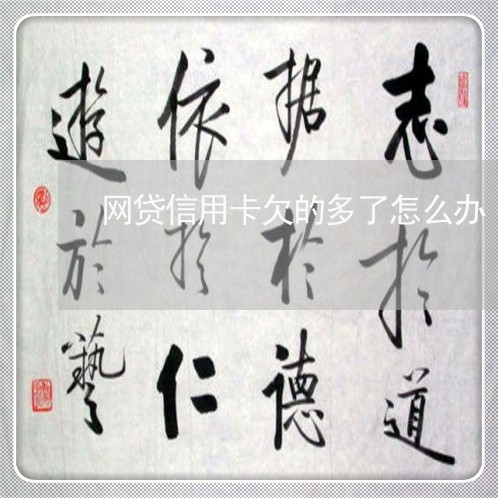 志於道
据於德
依於仁
遊於藝
网贷信用卡欠的多了怎么办